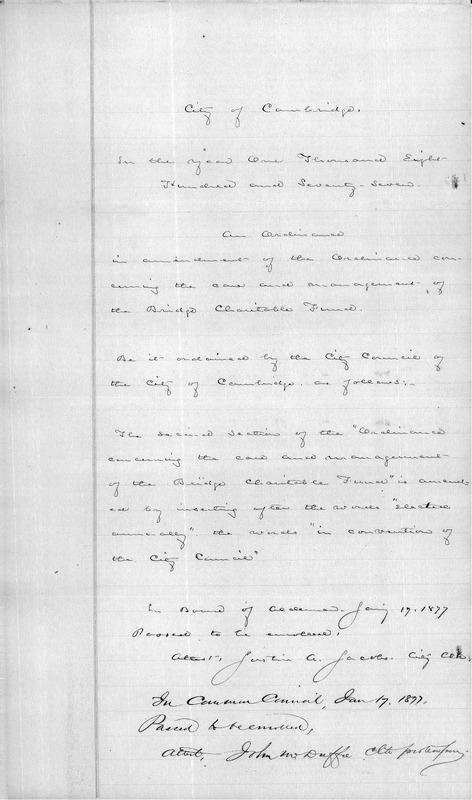 City of Cambridge.
In the year One Thousand Eight
Hundred and Seventy-Seven.
An Ordinance
in amendment of the Ordinance con-
cerning the care and management of
the Bridge Charitable Fund.
Be it ordained by the City Council of
the City of Cambridge, as follows:-
The second section of the "Ordinance
concerning the care and management
of the Bridge Charitable Fund" is amend-
ed by inserting after the words "elected
annually" the words "in convention of
the City Council"
In Board of Aldermen. Jany 17. 1877
Passed to be enrolled.
Attest, Justin A. Jacobs. City Clk.
In Common Council, Jan 17, 1877.
Passed to be enrolled,
Attest, John McDuffie Clk pro tempore